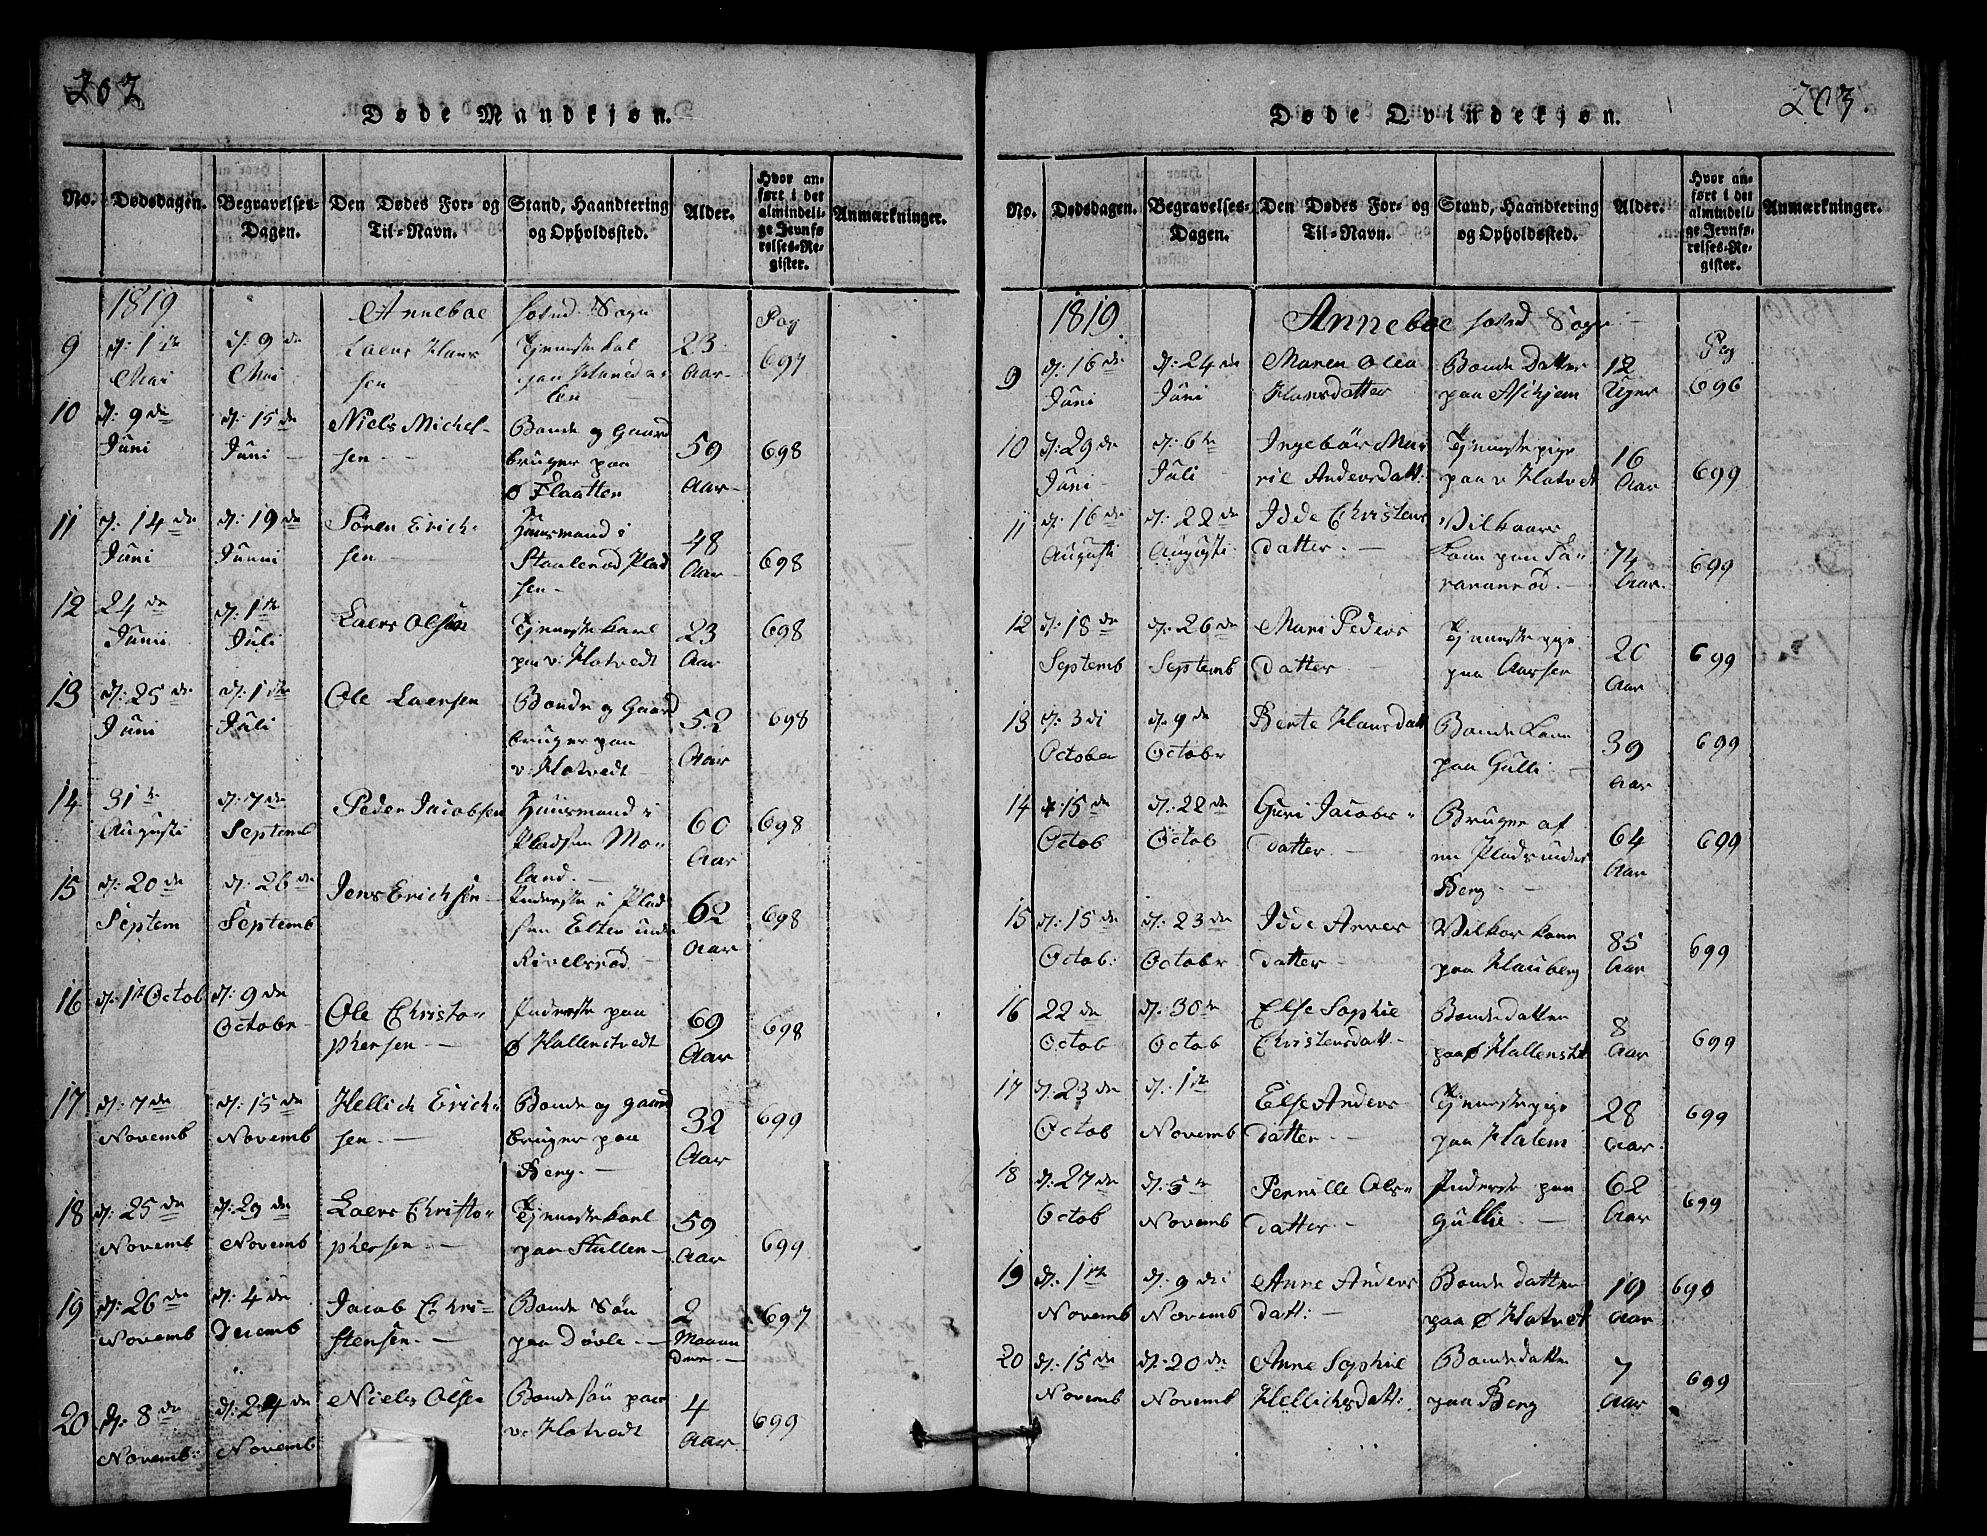 202
Døde Mandkjøn.
No. Dødsdagen. Begravelses-Dagen. Den Dødes For- og Til-Navn. Stand, Haandtering og Opholdssted. Alder. Hvor anført i det almindelige Jevnførelses-Register. Anmærkninger.
1819 Anneboe Sogn Pag
9 d: 1te Mai d: 9de Mai Laers Hansen Tjenneste Kal paa 23 Aar 697
10 d: 9de Juni d: 15de Juni Niels Michelsen Bonde og Gaardbruger paa ø Flaatten 59 Aar 698
11 d: 14de Juni d: 19de Junni Søren Erichsen Huusmand i Staulerød Pladsen 48 Aar 698
12 24de Junii d: 1te Juli Laers Olsen Tjenneste Karl paa v: Hotvedt 23 Aar 698
13 d: 25de Juni d: 1te Juli Ole Laersen Bonde og Gaardbruger paa v: Hotvedt 52 Aar 698
14 31te Augusti d: 7de Septemb Peder Jacobsen Huusmand i Pladsen Moland. 60 Aar 698
15 d: 20de Septem d: 26de Septemb Jens Erichsen Inderste i Pladsen unde Rivelsrød 62 Aar 698
16 d: 1te Octob d: 9de Octobr Ole Christophersen Inderste paa ø Hallenstvedt 69 Aar 698
17 d: 7de Novemb d: 15de Novemb Hellich Erichsen. Bonde og gaardbruger paa Berg. 32 Aar 699
18 d: 25de Novemb d: 29de Novemb Laers Christophersen Tjenneste karl paa Stullen 59 Aar 699
19 d: 26de Novemb d: 4de Decemb Jacob Christensen. Bonde Søn paa Døvle 2 Maaneder 697
20 d: 8de Novemb: d: 24de Novemb Niels Olsen Bondesøn paa v: Hotvedt 4 Aar 699
203.
Døde Qvindekjøn.
No. Dødsdagen. Begravelses-Dagen. Den Dødes For- og Til-Navn. Stand, Haandtering og Opholdssted. Alder. Hvor anført i det almindelige Jevnførelses-Register. Anmærkninger.
1819 Anneboe Sogn Pag
9 d: 16de Juni d: 24de Juni Maren Olea Hansdatter Bonde Datter paa Aschjem 12 Uger 696
10 d: 29de Juni d: 6te Juli Ingebör Marie Andersdatt: Tjenneste pige paa v Hotvet 16 Aar 699
11 d: 16de Augusti d: 22de Augusti Idde Christensdatter. Vilkaars Kone paa 74 Aar. 699
12 d: 18de Septemb d: 26de Septemb Mari Pedersdatter Tjenneste pige paa Aarsen 20 Aar 699
13 d: 3di October d: 9de Octobr Berte Hansdatt Bonde Kone paa Gulli 39 Aar 699
14 15de Octob d: 22de Octob Guri Jacobsdatter Bruger af en Plads under Berg 64 Aar 699
15 d: 15de Octob: d: 23de Octobr Idde Annesdatter Vilkor kone paa Hauberg 85 Aar 699
16 22de Octob d: 30te Octob Else Sophie Christensdatt Bondedatter paa ø Hallenstvt 8 Aar 699
17 d: 23de Octob d: 1te Novemb Else Andersdatter Tjennestepige paa Halem 28 Aar. 699
18 d: 27de Octob d: 5te Novemb Pernille Olsdatter Inderste paa Gullie. 62 Aar 699
19 d: 1te Novemb d: 9de Novemb Anne Andersdatt: Bonde datter paa ø Hotvet 19 Aar 690
20 d: 15de Novemb d: 20de Novemb Anne Sophie Hellichsdatt: Bondedatter paa Berg 7 Aar 699